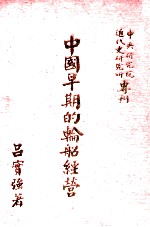 中央研究院
近代史研究所專刊
中國早期的輪船經營
呂實強著